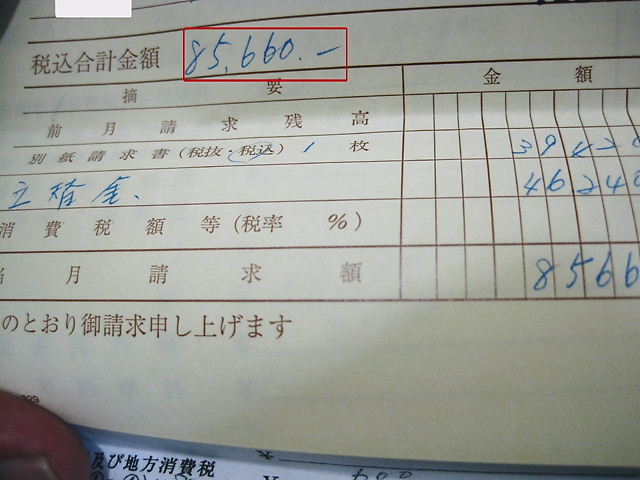 税込合計金額 85,660.-
摘 要 金 額
前 月 請 求 残 高
別紙請求書(税抜・税込) 1 枚 39420
立替金、 46240
消 費 税 額 等 (税率 %)
月 請 求 額 8566
のとおり御請求申し上げます
及び地方消費税